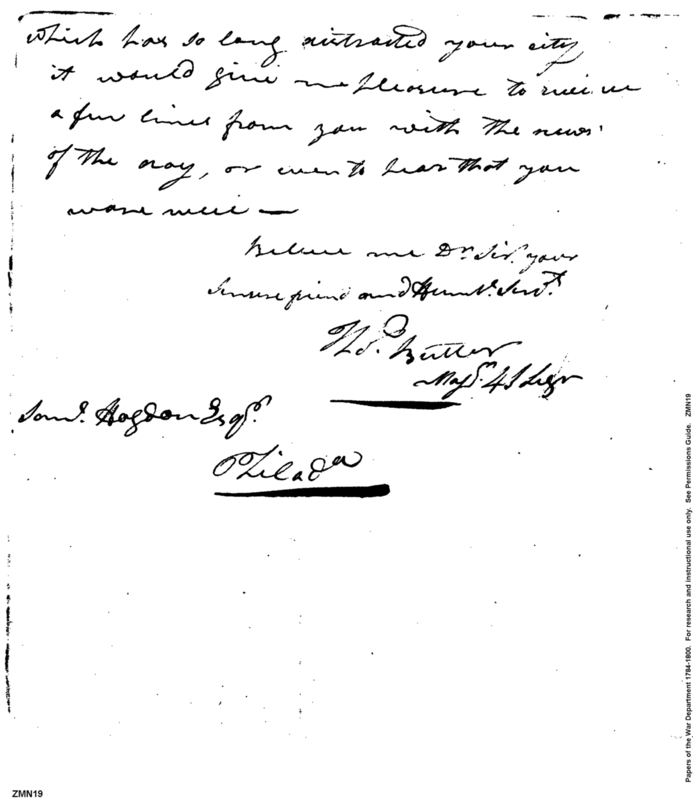 which has so long distracted your city
it would give me pleasure to receive
a few lines from you with the news
of the day, or even to hear that you
ware well —
Believe me Dr. Sir. your
Sincere friend and Humb. Servt.
Tho.s Butler
Maj. 4 S Legn
Saml. Hogdon Esqr.
Philada
Papers of the War Department 1784-1800. For research and instructional use only. See Permissions Guide. ZMN19
ZMN19